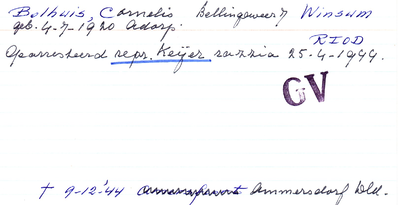 Bolhuis, Cornelis Bellingeweer 7 Winsum
geb. 4-7-1920 Adorp. RIOD
Gearresteerd repr. Keijer razzia 25-4-1944.
GV
† 9-12-'44 Ammersdorf Dld.